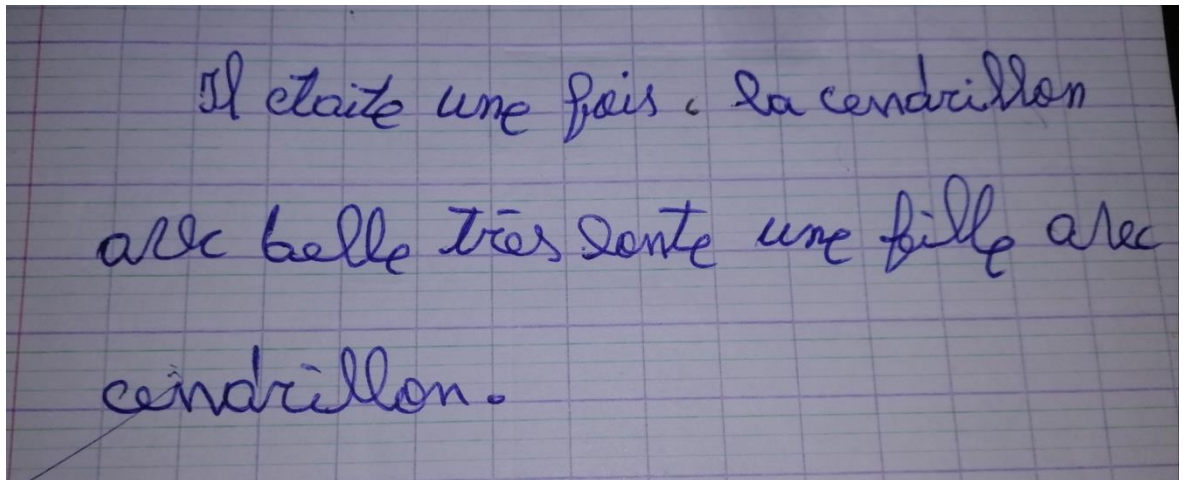 Il etaite une fois. la cendrillon
avec belle très lente une fille avec
cendrillon.